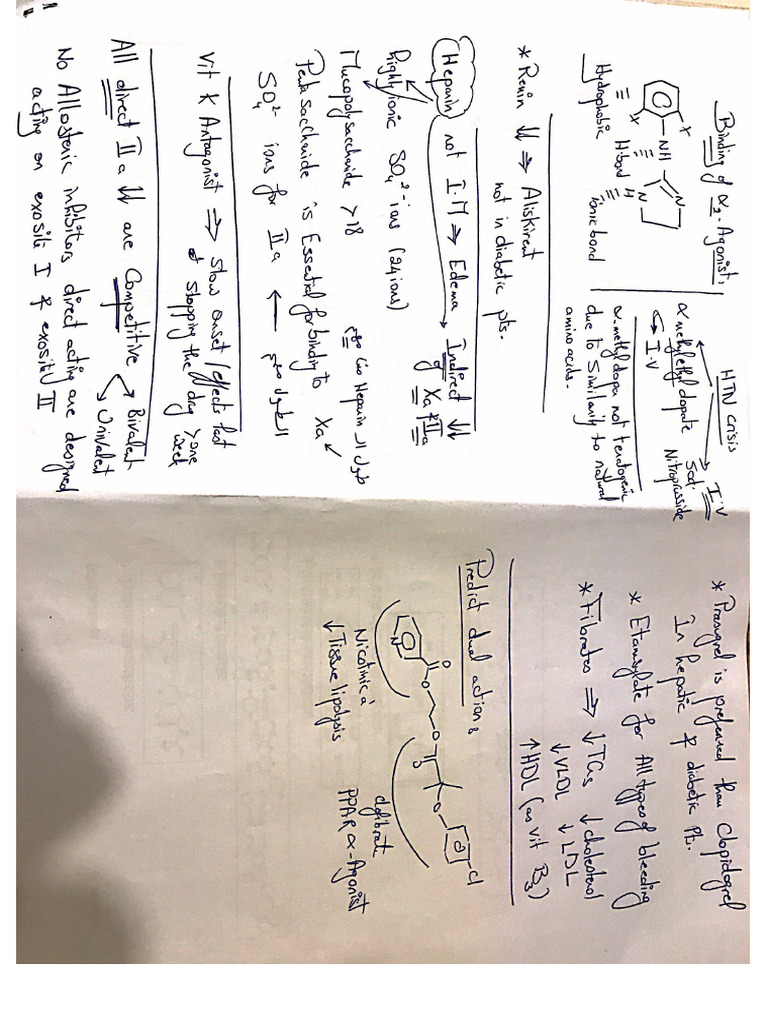 Binding of α2-Agonist:
X
NH
N
H
N
X
Hydrophobic
H-bond
ionic bond
HTN crisis
α methylethyl dopate
↳ I.V
I.V
Sod.
Nitroprusside
α-methyl dopa not teratogenic
due to Similarity to natural
amino acids.
* Renin ↓↓ ⇒ Aliskiren
not in diabetic pts.
Heparin not I.M ⇒ Edema
Indirect ↓↓
of Xa & IIa
highly ionic SO4 2- ions (24 ions)
Mucopolysaccharide > 18
Heparin ال
Penta saccharide is Essential for binding to Xa
SO4 2- ions for IIa ←
Vit K Antagonist ⇒ Slow onset / effects last
Stopping the drug > one
week
All direct IIa ↓↓ are Competitive
Bivalent
Univalent
No Allosteric inhibitors direct acting are designed
acting on exosite I & exosite II
* Prasugrel is preferred than Clopidogrel
In hepatic & diabetic Pt.
* Etamsylate for All types of bleeding
* Fibrates ⇒ ↓TGs ↓cholesterol
↓VLDL ↓LDL
↑HDL (as vit B3)
Predict dual action:
N
O
O
O
O
O
Cl
Nicotinic a
↓Tissue lipolysis
clofibrate
PPAR α-Agonist